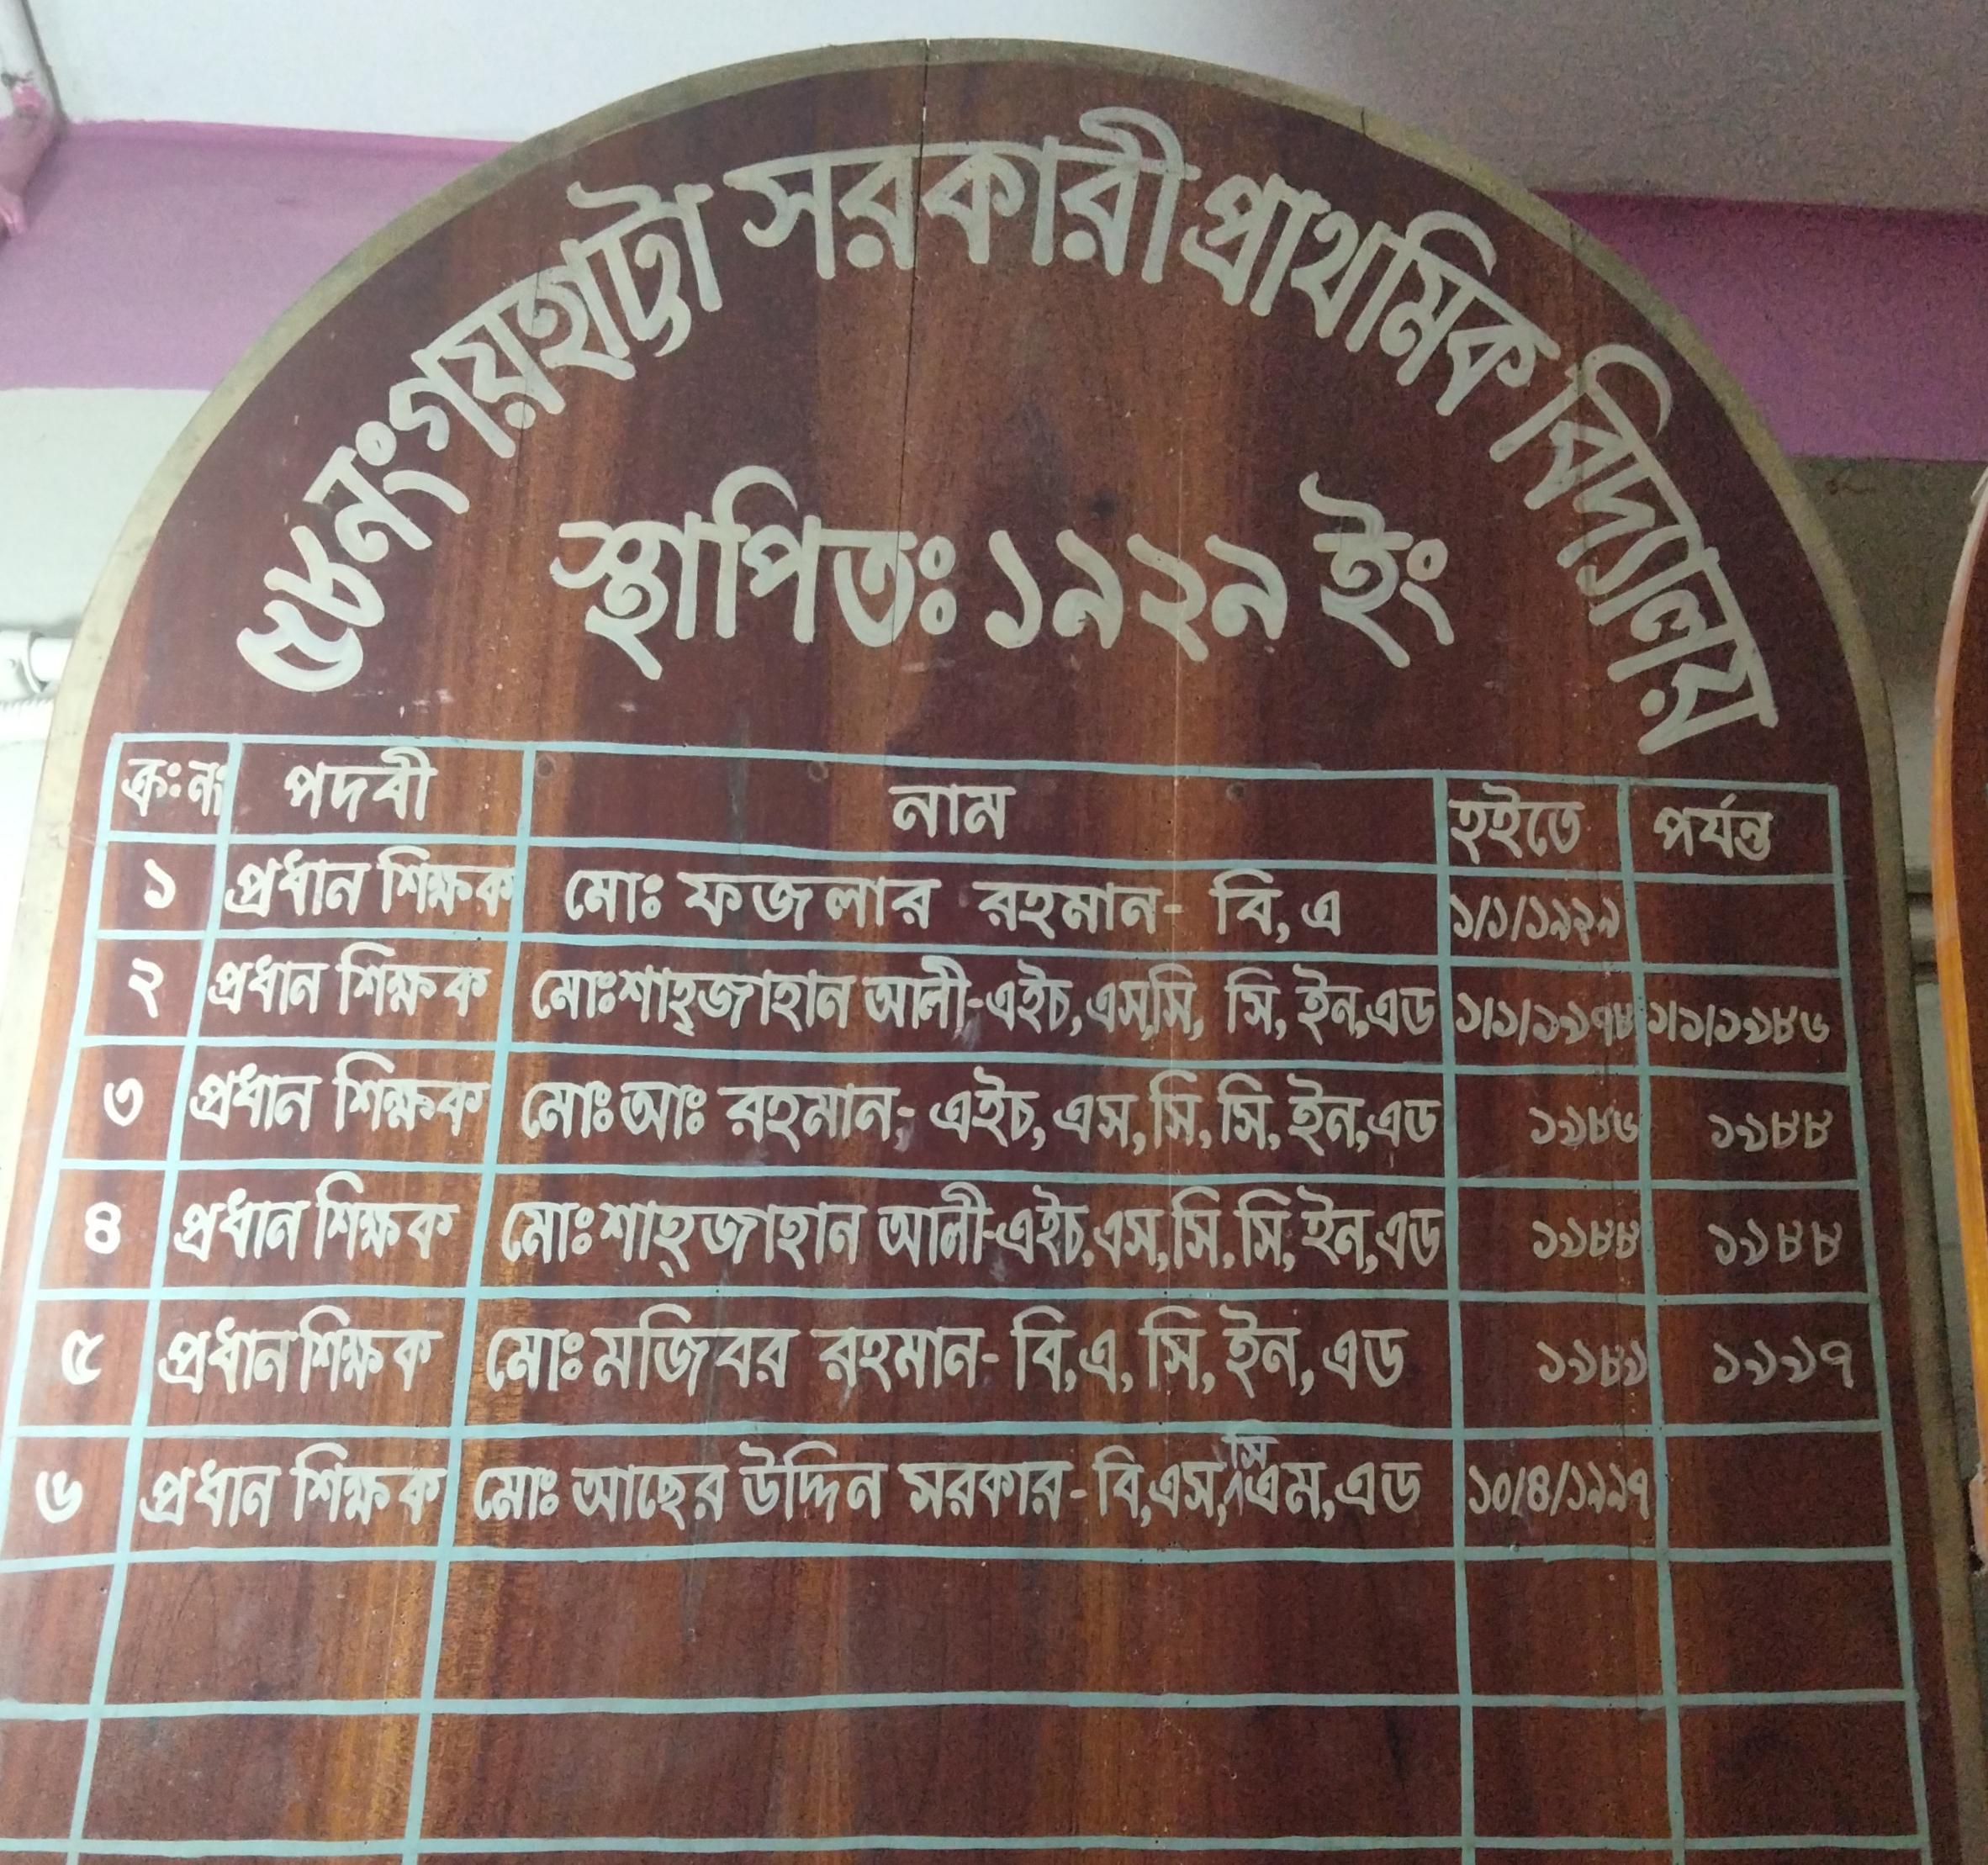 ৫৮নং গয়হাট্টা সরকারী প্রাথমিক বিদ্যালয়
স্থাপিতঃ ১৯২৯ ইং
ক্রঃনং পদবী নাম হইতে পর্যন্ত
১ প্রধান শিক্ষক মোঃ ফজলার রহমান- বি,এ ১/১/১৯২৯
২ প্রধান শিক্ষক মোঃশাহ্জাহান আলী-এইচ,এস,সি, সি, ইন,এড ১/১/১৯৭৪ ১/১/১৯৮৬
৩ প্রধান শিক্ষক মোঃ আঃ রহমান,- এইচ, এস, সি, সি, ইন,এড ১৯৮৬ ১৯৮৮
৪ প্রধান শিক্ষক মোঃ শাহ্জাহান আলী-এইচ,এস,সি, সি, ইন,এড ১৯৮৮ ১৯৮৮
৫ প্রধান শিক্ষক মোঃ মজিবর রহমান- বি,এ, সি, ইন, এড ১৯৮৯ ১৯৯৭
৬ প্রধান শিক্ষক মোঃ আছের উদ্দিন সরকার- বি,এস,সি এম,এড ১০/৪/১৯৯৭